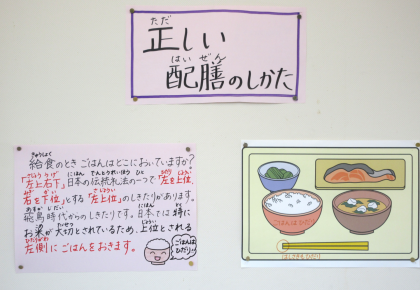 ただ
正しい
はいぜん
配膳のしかた
きゅうしょく
給食のとき ごはんはどこにおいていますか?
さじょううげ にほん でんとうれいほう ひと ひだり じょうい
「左上右下」日本の伝統礼法の一つで、「左を上位、
みぎ かい さじょうい
右を下位」とする「左上位」のしきたりがあります。
あすかじだい
飛鳥時代からのしきたりです。日本では特に
こめ たいせつ じょうい
お米が大切とされているため、上位とされる
ひだりがわ
左側にごはんをおきます。
ごはんは
ひだり!
ごはんはひだり
はしさきもひだり